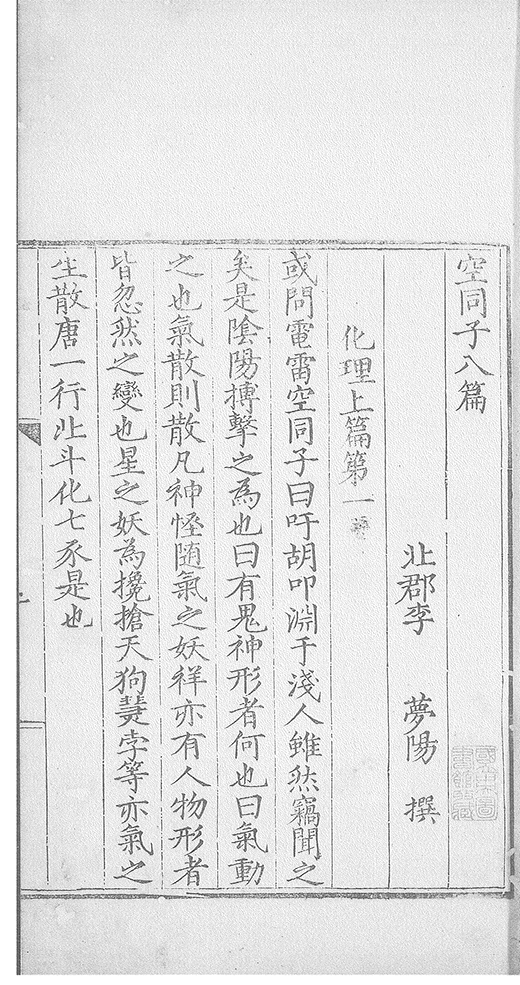 空同子八篇
北郡李 夢陽 撰
化理上篇第一
或問電雷空同子曰吁胡叩淵于淺人雖然竊聞之
矣是陰陽搏擊之為也曰有鬼神形者何也曰氣動
之也氣散則散凡神怪随氣之妖祥亦有人物形者
皆忽然之變也星之妖為攙搶天狗彗孛等亦氣之
生散唐一行北斗化七豕是也